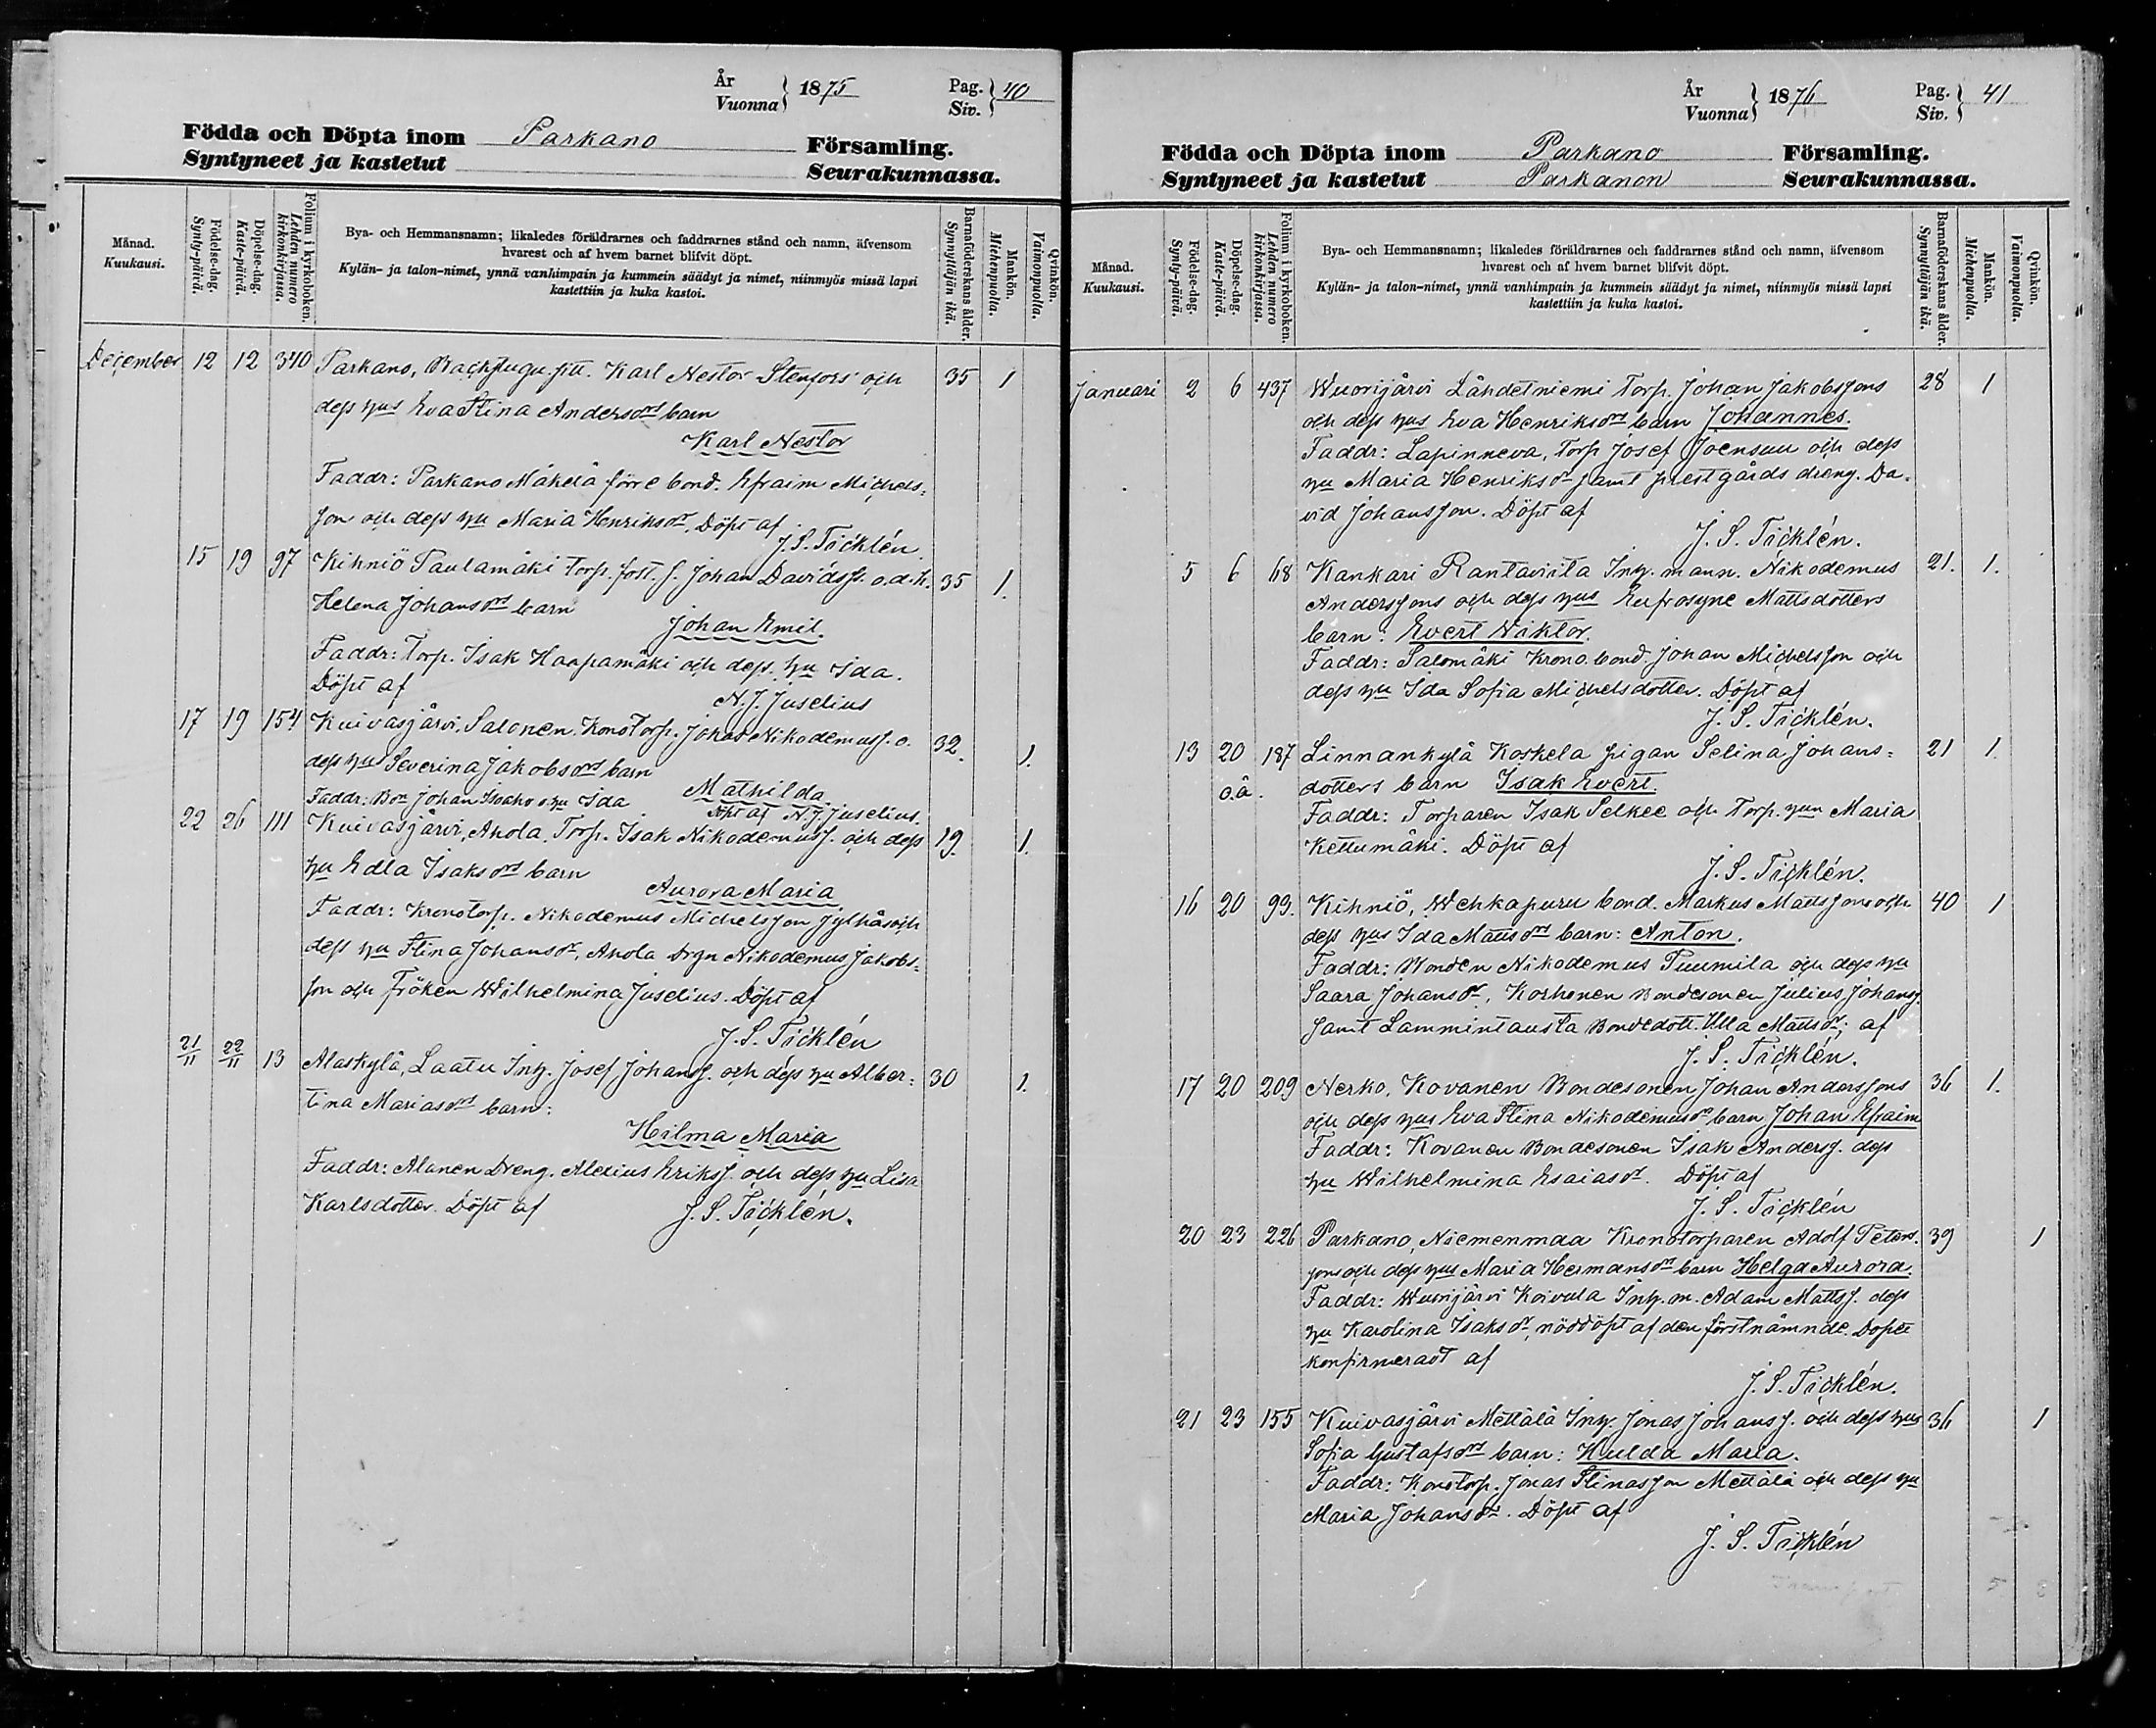 År
Vuonna } 1875
Pag.
Siv. } 40
Födda och Döpta inom Parkano Församling.
Syntyneet ja kastetut Seurakunnassa.
Månad.
Kuukausi.
Födelse-dag.
Synty-päivä.
Döpelse-dag.
Kaste-päivä.
Folium i kyrkoboken.
Lehden numero
kirkonkirjassa.
Bya- och Hemmansnamn; likaledes föräldrarnes och faddrarnes stånd och namn, äfvensom
hvarest och af hvem barnet blifvit döpt.
Kylän- ja talon-nimet, ynnä vanhimpain ja kummein säädyt ja nimet, niinmyös missä lapsi
kastettiin ja kuka kastoi.
Barnaföderskans ålder.
Synnyttäjän ikä.
Mankön.
Miehenpuolia.
Qvinkön.
Vaimonpuolia.
December 12 12 340 Parkano, Karl Nestor Stenfors och 35 1
dess hus Eva Stina Andersdrs barn
Karl Nestor
Faddr: Parkano Mäkelä förre bond. Efraim Michels-
son och dess hu Maria Henriksdr, Döpt af
J. S. Ticklén.
15 19 97 Kihniö Paulamäki Torp. fost. s. Johan Davidss. o. d. h. 35 1.
Helena Johansdrs barn
Johan Emil.
Faddr: Torp. Isak Haapamäki och dess hu Ida.
Döpt af
N. J. Juselius
17 19 154 Kuivasjärvi, Salonen, Konotorp. Johan Nikodemuss. o. 32. 1.
dess hus Severina Jakobsdrs barn
Mathilda
Faddr: Bon Johan Isaho o. hu Ida Döpt af N. J. Juselius.
22 26 111 Kuivasjärvi, Ahola, Torp. Isak Nikodemuss. och dess 19. 1.
hu Edla Isaksdrs barn
Aurora Maria
Faddr: Kronotorp. Nikodemus Michelsson Jylhäs och
dess hu Stina Johansdr, Ahola Drgn Nikodemus Jakobs-
son och Fröken Wilhelmina Juselius. Döpt af
J. S. Ticklén
21/11 22/11 13 Alaskylä, Laatu Inh. Josef Johanss. och dess hu Alber- 30 1.
tina Mariasdrs barn:
Hilma Maria
Faddr: Alanen Dreng. Alexius Erikss. och dess hu Lisa
Karlsdotter. Döpt af J. S. Ticklén.
År
Vuonna } 1876
Pag.
Siv. } 41
Födda och Döpta inom Parkano Församling.
Syntyneet ja kastetut Parkanon Seurakunnassa.
Månad.
Kuukausi.
Födelse-dag.
Synty-päivä.
Döpelse-dag.
Kaste-päivä.
Folium i kyrkoboken.
Lehden numero
kirkonkirjassa.
Bya- och Hemmansnamn; likaledes föräldrarnes och faddrarnes stånd och namn, äfvensom
hvarest och af hvem barnet blifvit döpt.
Kylän- ja talon-nimet, ynnä vanhimpain ja kummein säädyt ja nimet, niinmyös missä lapsi
kastettiin ja kuka kastoi.
Barnaföderskans ålder.
Synnyttäjän ikä.
Mankön.
Miehenpuolia.
Qvinkön.
Vaimonpuolia.
Januari 2 6 437 Wuorijärvi Lähdetniemi Torp. Johan Jakobssons 28 1
och dess hus Eva Henriksdrs barn Johannes.
Faddr: Lapinneva, Torp Josef Joensuu och dess
hu Maria Henriksdr samt prestgårds dreng. Da-
vid Johansson. Döpt af
J. S. Ticklén.
5 6 68 Kankari Rantaviita Inh. mann. Nikodemus 21. 1.
Anderssons och dess hus Eufrosyne Mattsdotters
barn: Evert Wiktor.
Faddr: Salomäki Krono. bond. Johan Michelsson och
dess hu Ida Sofia Michelsdotter. Döpt af
J. S. Ticklén.
13 20 187 Linnankylä Koskela pigan Selina Johans- 21 1.
o.ä. dotters barn Isak Evert.
Faddr: Torparen Isak Selkee och Torp. hun Maria
Kettumäki. Döpt af
J. S. Ticklén.
16 20 99. Kihniö, Wehkapuru bond. Markus Mattssons och 40 1
dess hus Ida Mattsdrs barn: Anton.
Faddr: Bonden Nikodemus Tuumila och dess hu
Saara Johansdr, Korhonen Bondesonen Julius Johanss.
samt Lammintausta Bondedott. Ulla Mattsdr; af
J. S. Ticklén.
17 20 209 Nerko, Kovanen Bondesonen Johan Anderssons 36 1.
och dess hus Eva Stina Nikodemusdr barn Johan Efraim
Faddr: Kovanen Bondesonen Isak Anderss. dess
hu Wilhelmina Esaiasdr. Döpt af
J. S. Ticklén
20 23 226 Parkano, Niemenmaa Kronotorparen Adolf Peters- 39 1
sons och dess hus Maria Hermansdrs barn Helga Aurora.
Faddr: Wuorijärvi Koivula Inh. m. Adam Mattss. dess
hu Karolina Isaksdr, nöddöpt af den förstnämnde. Dopet
konfirmeradt af
J. S. Ticklén.
21 23 155 Kuivasjärvi Mettälä Inh. Jonas Johanss. och dess hus 36 1
Sofia Gustafsdrs barn: Hulda Maria.
Faddr: Konotorp. Jonas Stinasson Mettälä och dess hu
Maria Johansdr. Döpt af
J. S. Ticklén